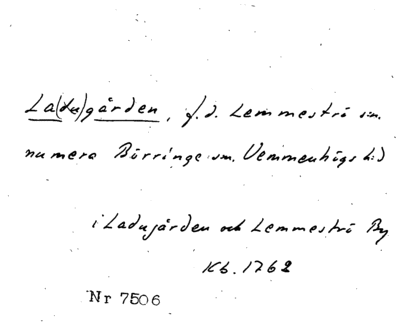 La(du)gården, f.d. Lemmeströ sn.
numera Börringe sn. Vemmenhögs h:d
i Ladugården och Lemmeströ By
Kb. 1762
Nr 7506